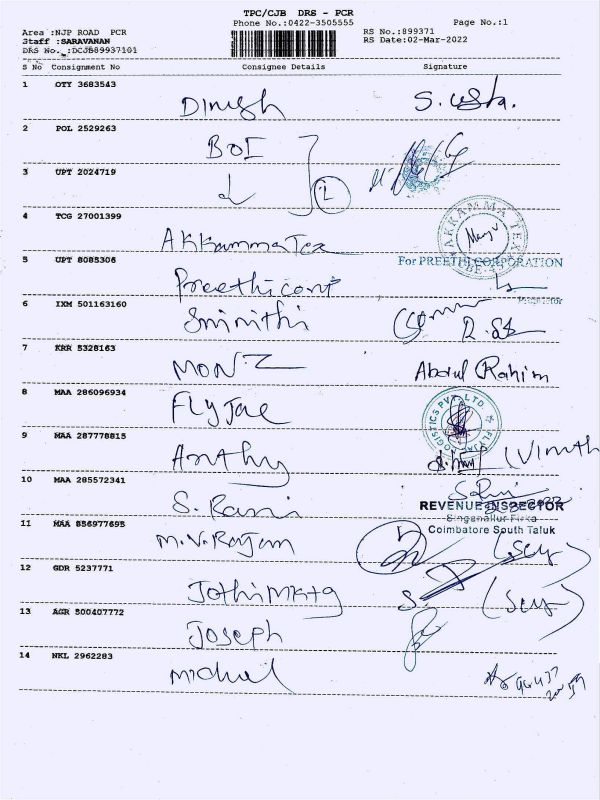 TPC/CJB DRS - PCR
Phone No.:0422-3505555
Page No.:1
Area :NJP ROAD PCR
RS No.:899371
Staff :SARAVANAN
RS Date:02-Mar-2022
DRS No. :DCJB89937101
S No Consignment No Consignee Details Signature
1 OTY 3683543
Dinesh
2 POL 2529263
BOI
3 UPT 2024719
2
4 TCG 27001399
Akkamma Tex
AKKAMMA TEX
5 UPT 8085306
For PREETHI CORPORATION
Preethi corp
Proprietor
6 IXM 501163160
Smrithi
7 KRR 5328163
MON
Abdul Rahim
8 MAA 286096934
Fly Jac
LOGISTICS PVT. LTD.
9 MAA 287778815
Anthy
10 MAA 285572341
S. Rani
REVENUE INSPECTOR
Singanallur Firka
Coimbatore South Taluk
11 MAA 856977695
M.V. Rajam
12 GDR 5237771
Jothimata
13 AGR 500407772
Joseph
14 NKL 2962283
Michael